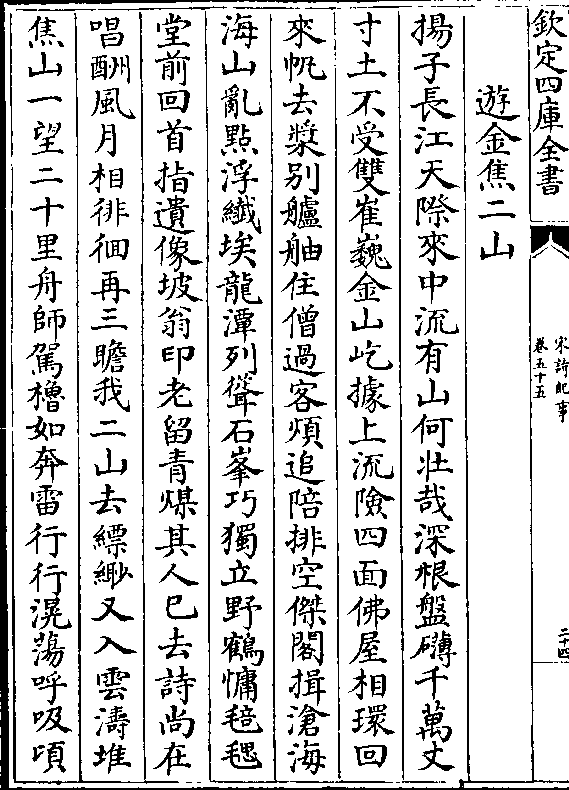 欽定四庫全書
宋詩紀事
卷五十五
二十四
遊金焦二山
揚子長江天際來中流有山何壯哉深根盤礴千萬丈
寸土不受雙崔巍金山屹據上流險四面佛屋相環回
來帆去槳別艫舳住僧過客煩追陪排空傑閣揖滄海
海山亂點浮纖埃龍潭列聳石峯巧獨立野鶴慵毰毸
堂前回首指遺像坡翁印老留青煤其人已去詩尚在
唱酬風月相徘徊再三瞻我二山去縹緲又入雲濤堆
焦山一望二十里舟師駕櫓如奔雷行行滉蕩呼吸頃